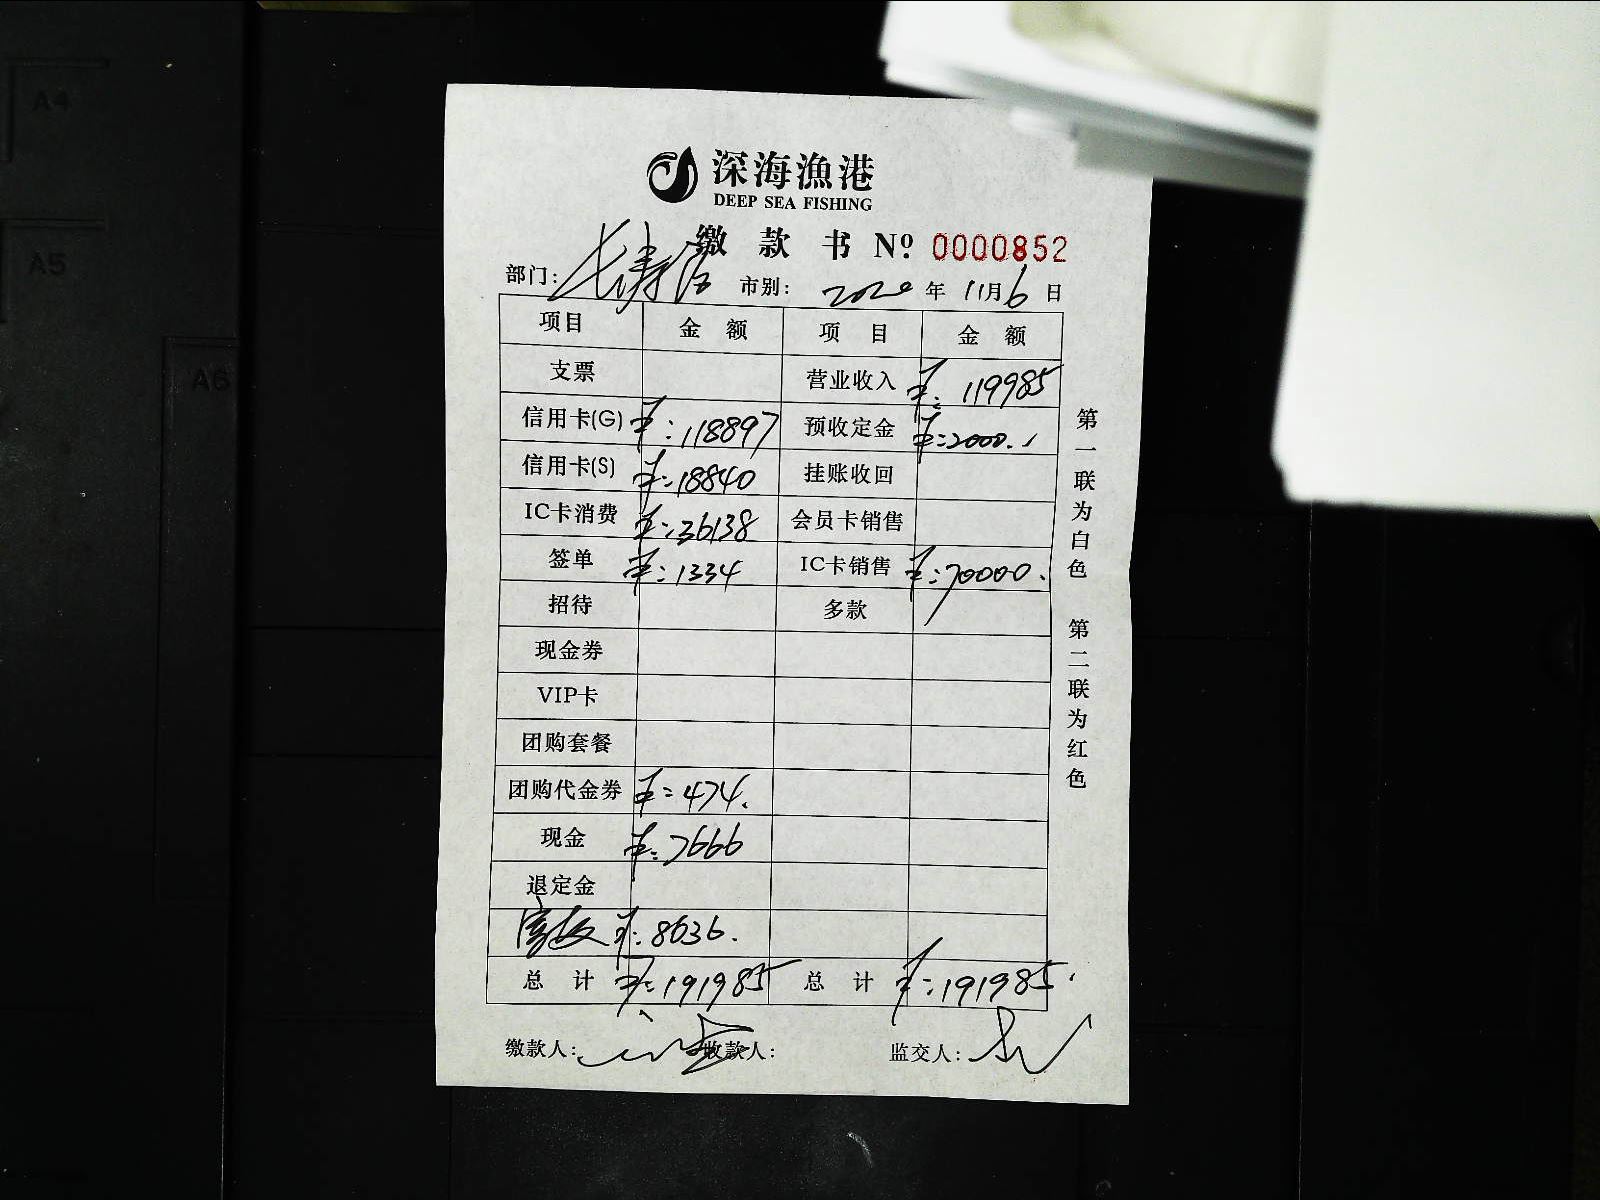 A4
A5
A6
深海漁港
DEEP SEA FISHING
缴 款 书 Nº: 0000852
部门: 长寿 市别: 2020 年 11月 6 日
项目 金 额 项 目 金 额
支票 营业收入 ¥: 119985
信用卡(G) ¥: 118897 预收定金 ¥: 2000.
信用卡(S) ¥: 18840 挂账收回
IC卡消费 ¥: 36138 会员卡销售
签单 ¥: 1334 IC卡销售 ¥: 70000.
招待 多款
现金券
VIP卡
团购套餐
团购代金券 ¥: 474.
现金 ¥: 7666
退定金
¥: 8636.
总 计 ¥: 191985 总 计 ¥: 191985.
缴款人: 收款人: 监交人:
第一联为白色 第二联为红色